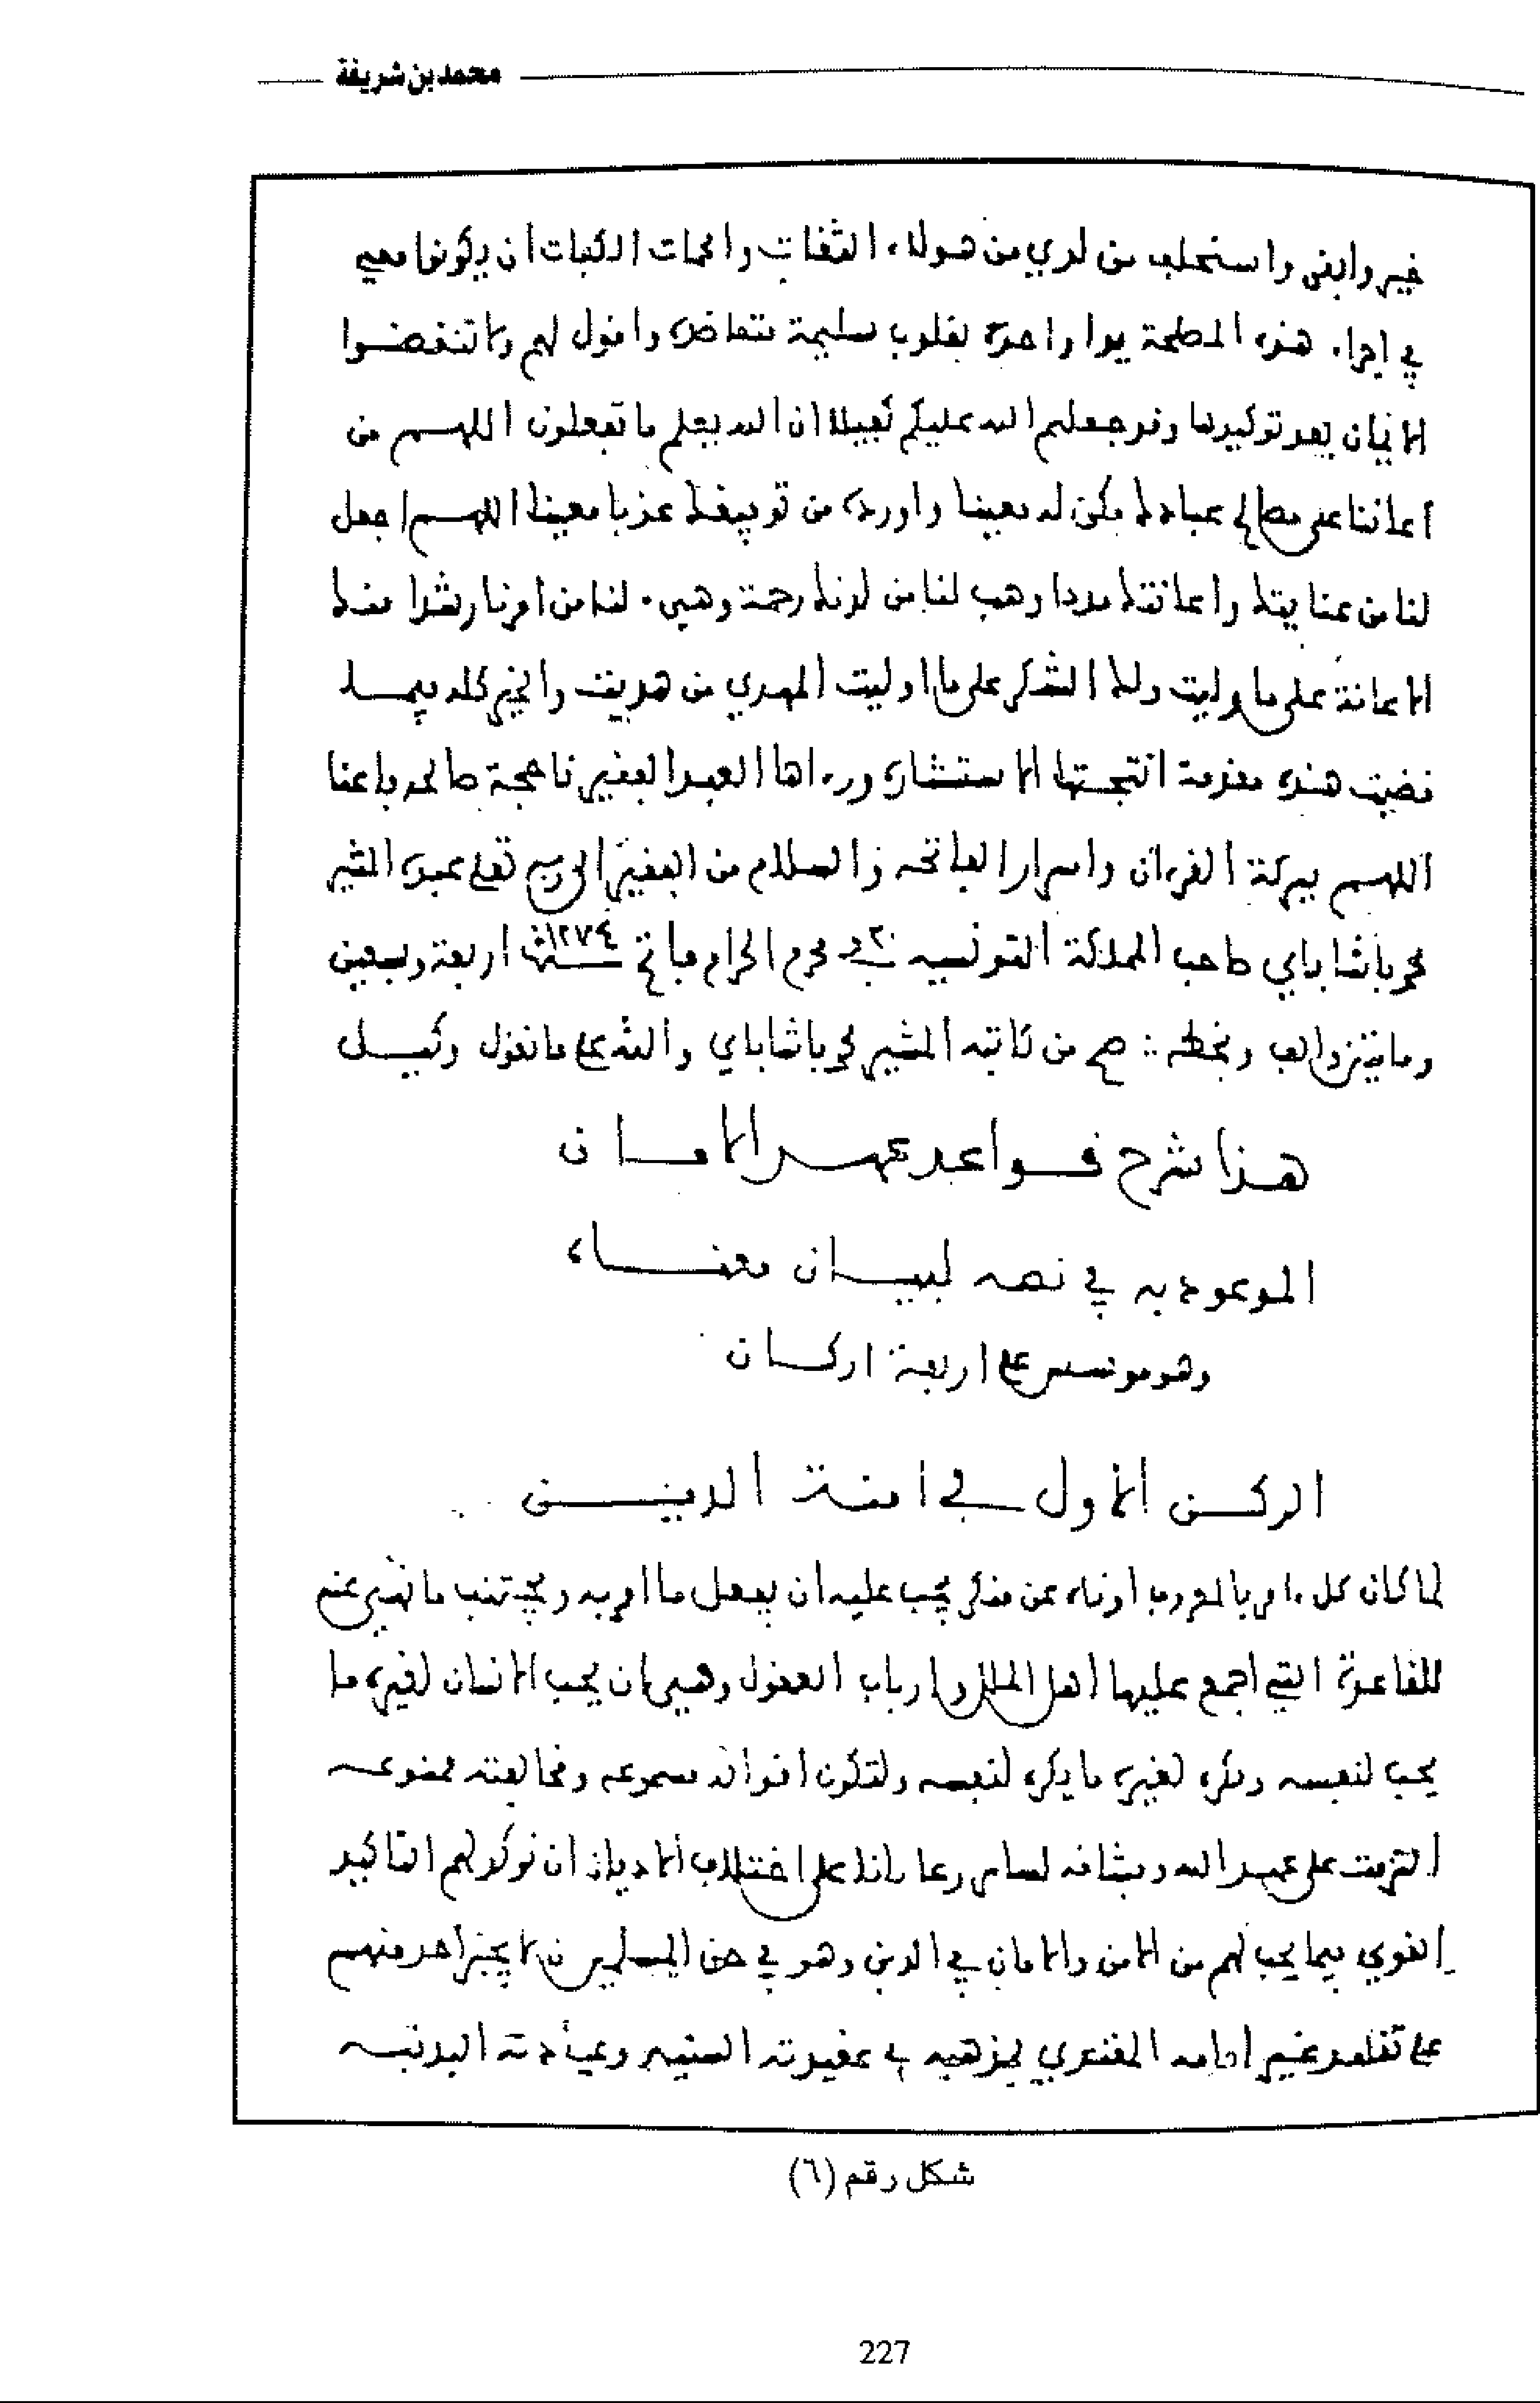 محمد بن شريفة
خير وابقى واستحلف من لدي من هولاء الثقات والحماة الكفاة ان يكونوا معي
في اجراء هذه المصلحة يدا واحدة بقلوب سليمة متعاضدة واقول لهم ولا تنقضوا
الايمان بعد توكيدها وقد جعلتم الله عليكم كفيلا ان الله يعلم ما تفعلون اللهم من
اعاننا على مصالح عبادك فكن له معينا واورده من توفيقك عذبا معينا اللهم اجعل
لنا من عنايتك واعانتك مددا وهب لنا من لدنك رحمة وهيء لنا من امرنا رشدا منك
الاعانة على ما وليت ولك الشكر على ما اوليت المهدي من هديت والخير كله فيما
قضيت هذه مقدمة انتجتها الاستشاره ورءاها العبد الفقير ناجحة صالحه فاعنا
اللهم ببركة القرءان واسرار الفاتحه والسلام من الفقير الى ربه تعلى عبده المشير
محمد باشا باي صاحب المملكة التونسيه في ٢٠ محرم الحرام فاتح سنة ١٢٧٤ اربعة وسبعين
ومايتين والف وبخطه : صح من كاتبه المشير محمد باشا باي والله على ما نقول وكيل
هذا شرح قواعد عهد الامان
الموعود به في نصه لبيان معناه
وهو موسس على اربعة اركان
الركن الاول في امنة الدين
لما كان كل ءامر بالمعروف او ناه عن منكر يجب عليه ان يفعل ما امر به ويجتنب ما نهى عنه
للقاعدة التي اجمع عليها اهل الملل وارباب العقول وهي ان يحب الانسان لغيره ما
يحب لنفسه ويكره لغيره ما يكره لنفسه ولتكون اقواله مسموعه ومخالفته ممنوعه
التزمت على عهد الله وميثاقه لساير رعايانا على اختلاف الاديان ان نوكد لهم التاكيد
القوي فيما يجب لهم من الامن والامان في الدين وهو في حق المسلمين ان لا يجبر احد منهم
على تقليد غير امامه المقتدي بمذهبه في عقيدته السنيه وعبادته البدنيه
شكل رقم (٦)
227